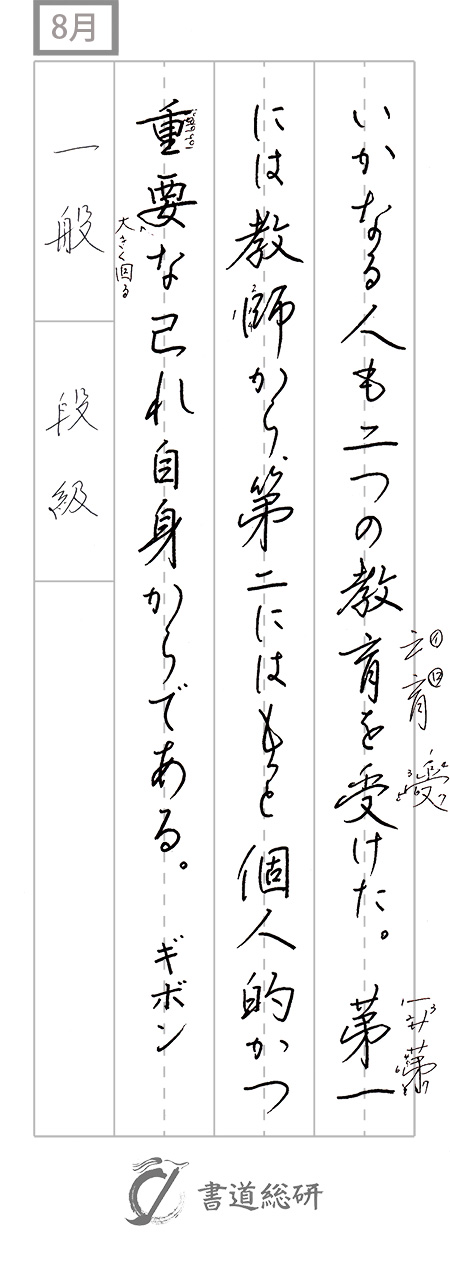 8月
いかなる人も二つの教育を受けた。第一
には教師から、第二にはもっと個人的かつ
重要な已れ自身からである。 ギボン
大きく回る
一般
段級
書道総研